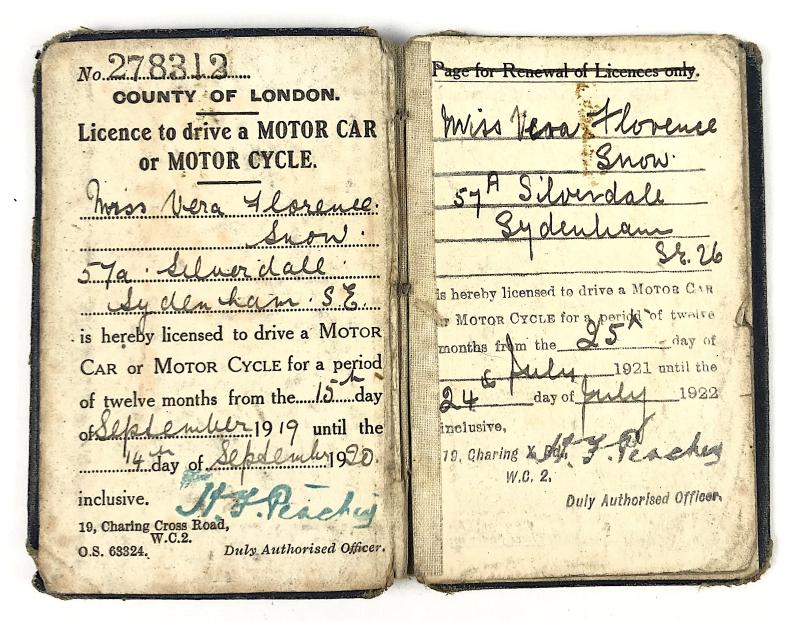 No. 278313
COUNTY OF LONDON.
Licence to drive a MOTOR CAR
or MOTOR CYCLE.
Miss Vera Florence
Snow.
57a. Silverdale
Sydenham. S.E.
is hereby licensed to drive a MOTOR
CAR or MOTOR CYCLE for a period
of twelve months from the 15th day
of September 1919 until the
14th day of September 1920.
inclusive.
H. F. Peachey
19, Charing Cross Road,
W.C.2.
O.S. 63324. Duly Authorised Officer.
Page for Renewal of Licences only.
Miss Vera Florence
Snow.
57A Silverdale
Sydenham
S.E. 26
is hereby licensed to drive a MOTOR CAR
or MOTOR CYCLE for a period of twelve
months from the 25th day of
July 1921 until the
24th day of July 1922
inclusive,
19, Charing X Rd,
H. F. Peachey
W.C. 2,
Duly Authorised Officer.